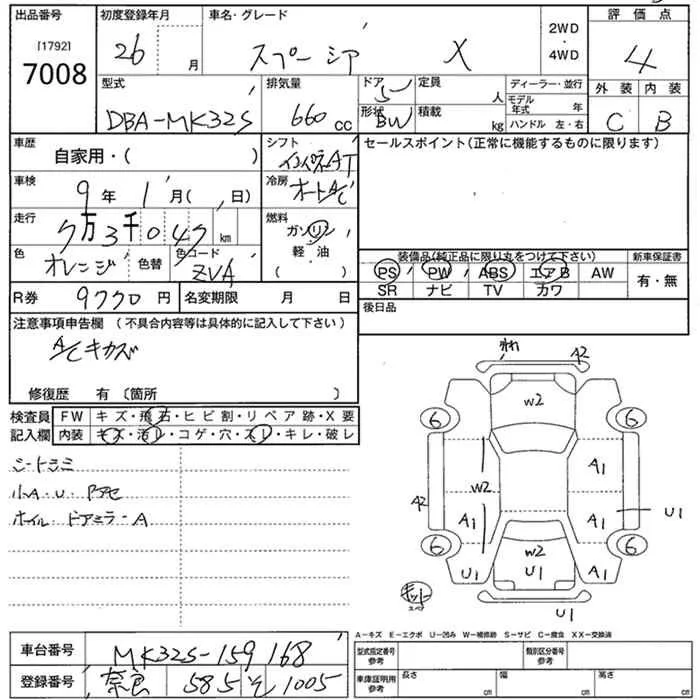 出品番号 初度登録年月 車名・グレード 評価点
[1792] 7008
26 月 スペーシア X 2WD・4WD 4
型式 排気量 ドア 5 定員 人 ディーラー・並行 外装 内装
DBA-MK32S 660cc 形状 BW 積載 kg モデル年式 年 ハンドル 左・右 C B
車歴 自家用・( ) シフト インパネAT セールスポイント(正常に機能するものに限ります)
車検 9年 1月( 日) 冷房 オートA/C
走行 7万3千047km 燃料 ガソリン
色 オレンジ 色替 色コード ZVA 軽油 ( )
装備品(純正品に限り丸をつけて下さい) 新車保証書
PS PW ABS エアB AW 有・無
SR ナビ TV カワ
R券 9770円 名変期限 月 日 後日品
注意事項申告欄(不具合内容等は具体的に記入して下さい)
A/Cキカズ
修復歴 有〔箇所 〕
検査員 FW キズ・飛石・ヒビ割・リペア跡・X要
記入欄 内装 キズ・汚レ・コゲ・穴・スレ・キレ・破レ
シートシミ
小A・U
ホイル・ドアミラーA
ワレ A2
W2
6 6
A1
W2
A2 A1 A1 U1
6 6
W2
U1 U1 A1
キット
スペア
U1
A-キズ E-エクボ U-凹み W-補修跡 S-サビ C-腐食 XX-交換済
車台番号 MK32S-159168 型式指定番号 参考 類別区分番号 参考
登録番号 奈良 585 そ 1005 車庫証明用 参考 長さ cm 幅 cm 高さ cm